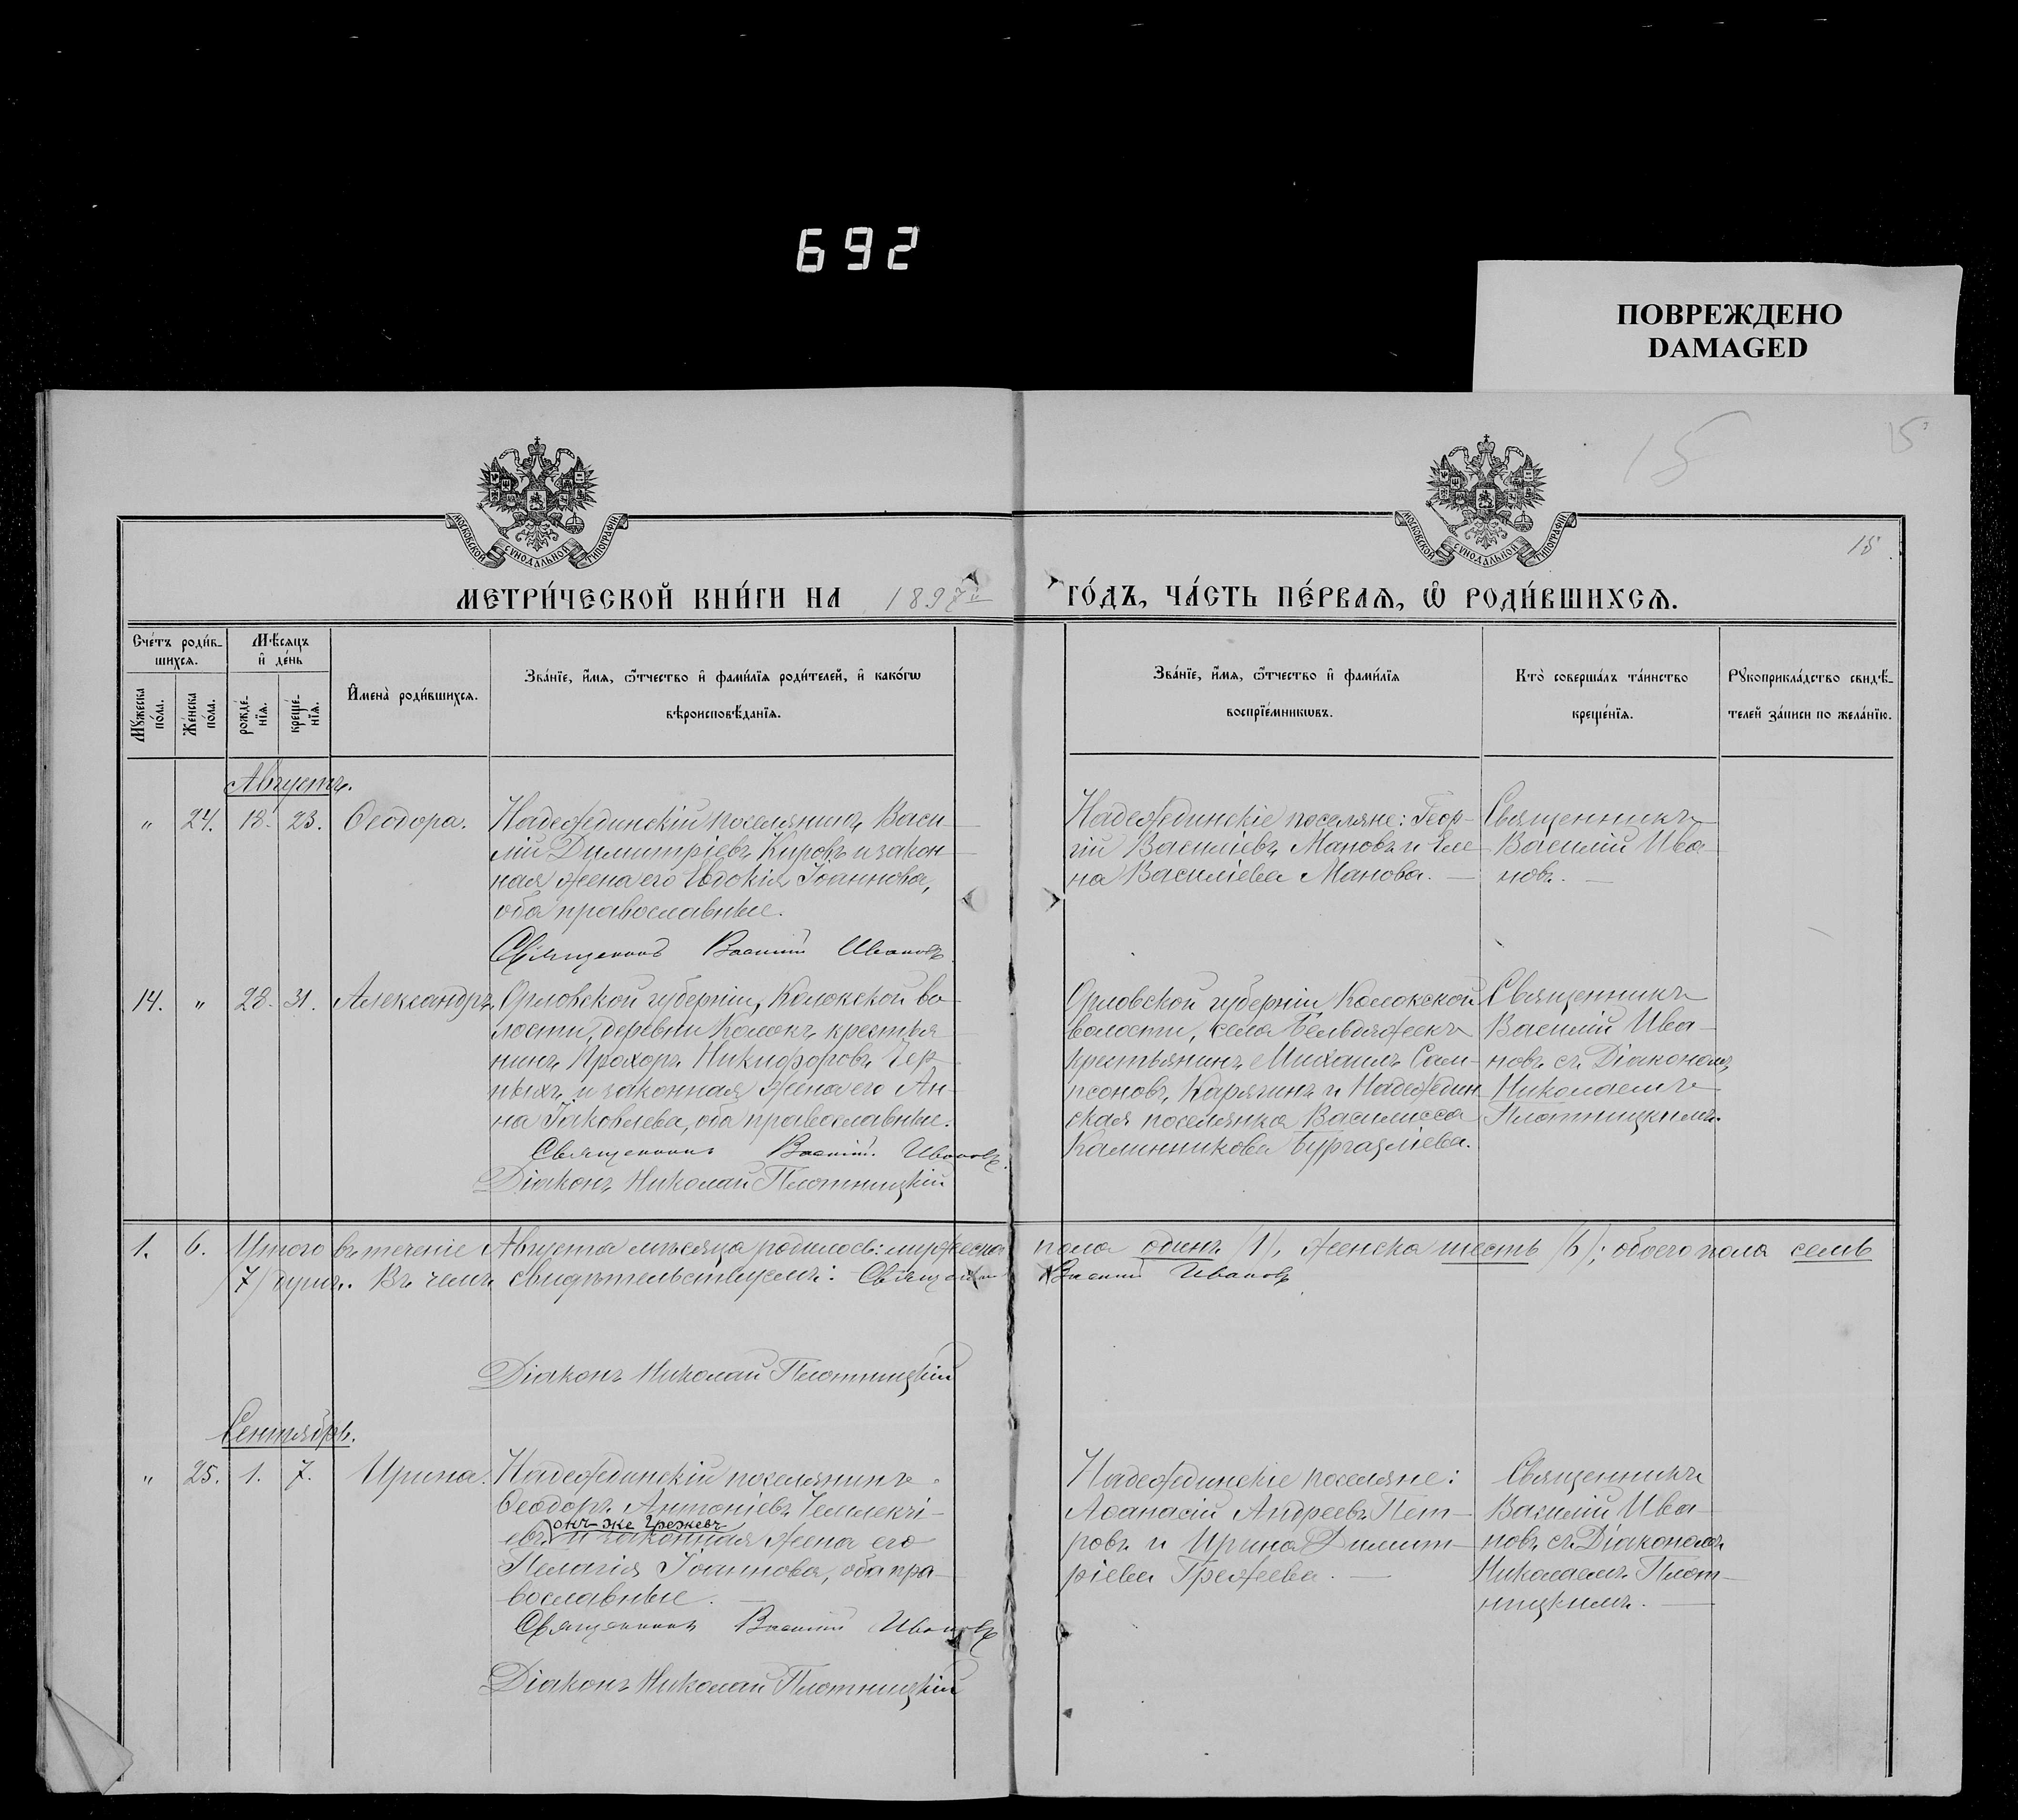 692
ПОВРЕЖДЕНО
DAMAGED
15
15
15
МОСКОВСКОЙ СѴНОДАЛЬНОЙ ТИПОГРАФІИ
МОСКОВСКОЙ СѴНОДАЛЬНОЙ ТИПОГРАФІИ
МЕТРИ́ЧЕСКОЙ КНИ́ГИ НА 1897й ГО́ДЪ, ЧА́СТЬ ПЕ́РВАѦ, Ѡ РОДИ́ВШИХСѦ.
Сче́тъ роди́в-
шихсѧ.
Мꙋжеска по́ла.
Же́нска по́ла.
Мѣ́сѧцъ
и де́нь
рожде́-
нїѧ.
креще́-
нїѧ.
Имена̀ роди́вшихсѧ.
Зва́нїе, и́мѧ, ѻ́тчество и фами́лїѧ роди́телей, и како́гѡ
вѣроисповѣ́данїѧ.
Зва́нїе, и́мѧ, ѻ́тчество и фами́лїѧ
воспрїе́мникѡвъ.
Кто̀ соверша́лъ та́инство
креще́нїѧ.
Рꙋкоприкла́дство свидѣ́-
телей за́писи по жела́нїю.
Августъ.
" 24. 18. 23. Ѳеодора.
Надеждинскій поселянинъ Васи-
лій Димитріевъ Кировъ и закон-
ная жена его Евдокія Іоаннова,
оба православные.
Священникъ Василій Ивановъ
Надеждинскіе поселяне: Геор-
гій Василіевъ Мановъ и Еле-
на Василіева Манова. —
Священникъ
Василій Ива-
новъ. —
14. " 28. 31. Александръ.
Орловской губерніи, Колокской во-
лости, деревни Колокъ крестья-
нинъ Прохоръ Никифоровъ Чер-
ныхъ и законная жена его Ан-
на Іаковлева, оба православные.
Священникъ Василій Ивановъ.
Діаконъ Николай Плотницкій
Орловской губерніи Колокской
волости, села Бельдяжекъ
крестьянинъ Михаилъ Сам-
псоновъ Карягинъ и Надеждин-
ская поселянка Василисса
Калинникова Бургазліева.
Священникъ
Василій Ива-
новъ съ Діакономъ
Николаемъ
Плотницкимъ.
1. 6. Итого въ теченіе Августа мѣсяца родилось: мужеска пола одинъ (1), женска шесть (6); обоего пола семь
(7) душъ. Въ чемъ свидѣтельствуемъ: Священникъ Василій Ивановъ
Діаконъ Николай Плотницкій
Сентябрь.
" 25. 1. 7. Ирина.
Надеждинскій поселянинъ
Ѳеодоръ Антоніевъ Челлекчі-
онъ-же Грежевъ
евъ и законная жена его
Пелагія Іоаннова, оба пра-
вославные. —
Священникъ Василій Ивановъ
Діаконъ Николай Плотницкій
Надеждинскіе поселяне:
Аѳанасій Андреевъ Пет-
ровъ и Ирина Димит-
ріева Грежева. —
Священникъ
Василій Ива-
новъ съ Діакономъ
Николаемъ Плот-
ницкимъ. —